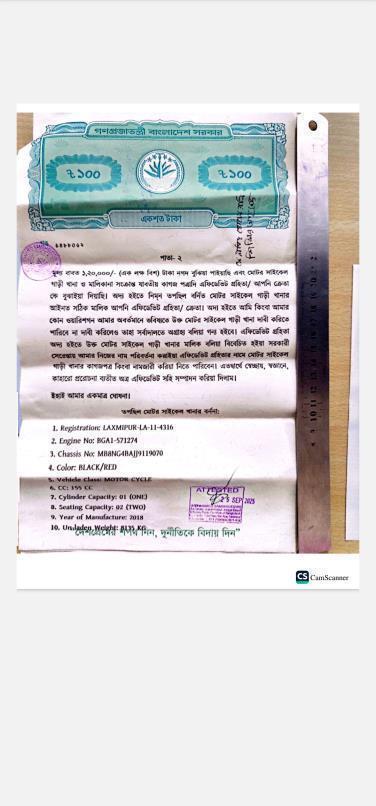 গণপ্রজাতন্ত্রী বাংলাদেশ সরকার
৳ ১০০
৳ ১০০
একশত টাকা
পাতা- ২
মূল্য বাবত ১,২০,০০০/- (এক লক্ষ বিশ) টাকা নগদ বুঝিয়া পাইয়াছি এবং মোটর সাইকেল
গাড়ী খানা ও মালিকানা সংক্রান্ত যাবতীয় কাগজ পত্রাদি এফিডেভিট গ্রহিতা/ আপনি ক্রেতা
কে বুঝাইয়া দিয়াছি। অদ্য হইতে নিম্ন তপছিল বর্নিত মোটর সাইকেল গাড়ী খানার
আইনত সঠিক মালিক আপনি এফিডেভিট গ্রহিতা/ ক্রেতা। অদ্য হইতে আমি কিংবা আমার
কোন ওয়ারিশগন আমার অবর্তমানে ভবিষ্যতে উক্ত মোটর সাইকেল গাড়ী খানা দাবী করিতে
পারিবে না দাবী করিলেও তাহা সর্বাদালতে অগ্রাহ্য বলিয়া গন্য হইবে। এফিডেভিট গ্রহিতা
অদ্য হইতে উক্ত মোটর সাইকেল গাড়ী খানার মালিক বলিয়া বিবেচিত হইয়া সরকারী
সেরেস্তায় আমার নিজের নাম পরিবর্তন করাইয়া এফিডেভিট গ্রহিতার নামে মোটর সাইকেল
গাড়ী খানার কাগজপত্র কিংবা নামজারী করিয়া নিতে পারিবেন। এতদার্থে স্বেচ্ছায়, স্বজ্ঞানে,
কাহারো প্ররোচনা ব্যতীত অত্র এফিডেভিট সহি সম্পাদন করিয়া দিলাম।
ইহাই আমার একমাত্র ঘোষনা।
তপছিল মোটর সাইকেল খানার বর্ননা:
1. Registration: LAXMIPUR-LA-11-4316
2. Engine No: BGA1-571274
3. Chassis No: MB8NG4BAJJ9119070
4. Color: BLACK/RED
5. Vehicle Class: MOTOR CYCLE
6. CC: 155 CC
7. Cylinder Capacity: 01 (ONE)
8. Seating Capacity: 02 (TWO)
9. Year of Manufacture: 2018
10. Un-laden Weight: 0135 KG
ATTESTED
23 SEP 2025
"দেশপ্রেমের শপথ নিন, দুর্নীতিকে বিদায় দিন"
CS CamScanner